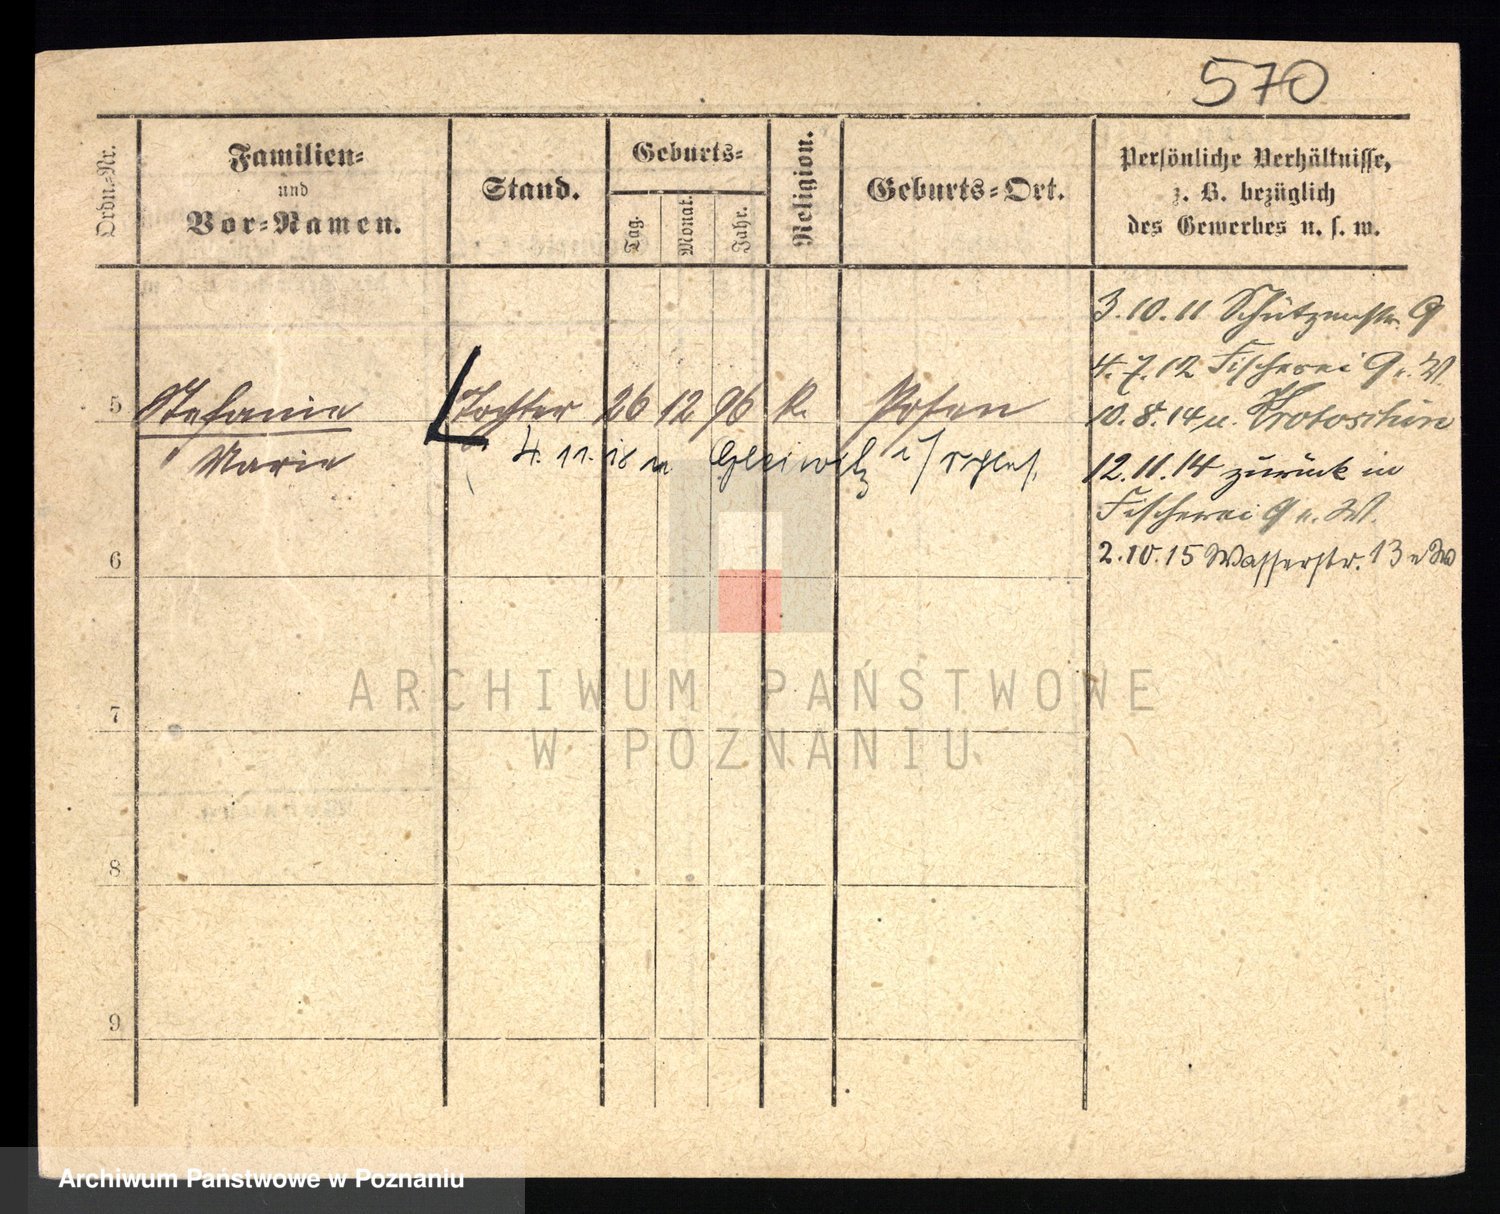 570
Ordn.-Nr.
Familien-
und
Vor-Namen.
Stand.
Geburts-
Tag.
Monat.
Jahr.
Religion.
Geburts-Ort.
Persönliche Verhältnisse,
z. B. bezüglich
des Gewerbes u. s. w.
3.10.11 Schützenstr. 9
4.7.12 Fischerei 9 b. W.
5 Stefanie Tochter 26 12 96 k. Posen
10.8.14 n. Krotoschin
Marie
4.11.18 n Gleiwitz i/Schles.
12.11.14 zurück in
Fischerei 9 b. W.
2.10.15 Wasserstr. 13
6
7
8
9
ARCHIWUM PAŃSTWOWE
W POZNANIU
Archiwum Państwowe w Poznaniu